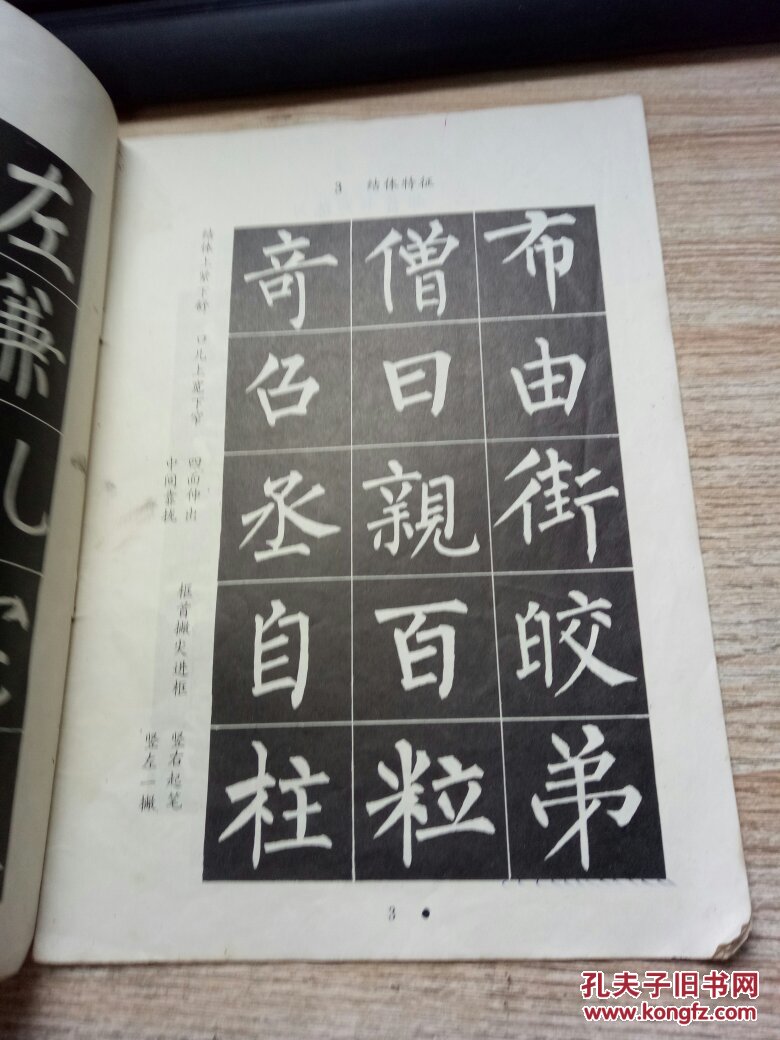 3 结体特征
布僧奇
由曰㕣
街親丞
皎百自
弟粒柱
结体上紧下舒
口儿上宽下窄
四面伸出
中间靠拢
框首撇尖进框
竖右起笔
竖左一撇
3
左
兼
孔夫子旧书网
www.kongfz.com